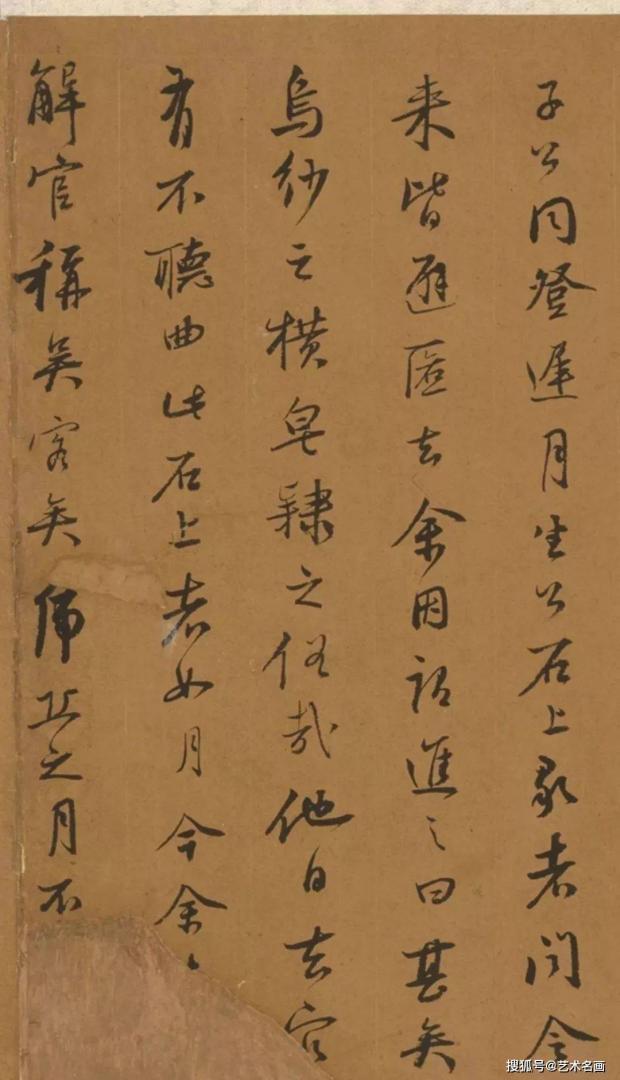 子公同登遲月生公石上歌者聞令
来皆避匿去余因謂進之曰甚矣
烏紗之橫皂隸之俗哉他日去官
有不聽曲此石上者如月今余
解官稱吳客矣虎丘之月不
搜狐号@艺术名画